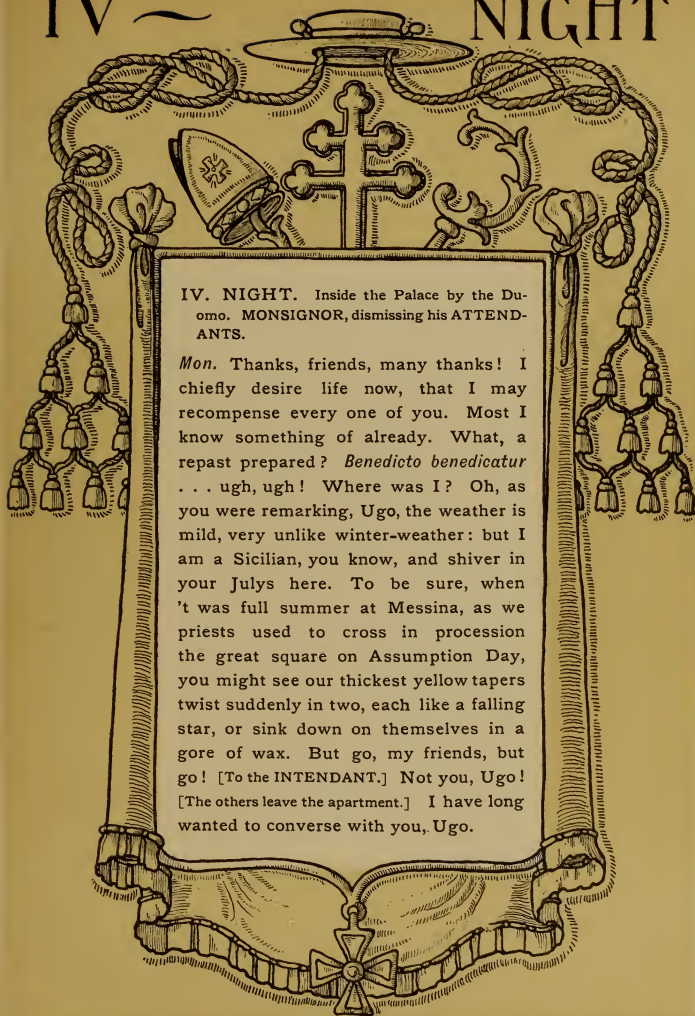 IV ~ NIGHT
IV. NIGHT. Inside the Palace by the Du-
omo. MONSIGNOR, dismissing his ATTEND-
ANTS.
Mon. Thanks, friends, many thanks! I
chiefly desire life now, that I may
recompense every one of you. Most I
know something of already. What, a
repast prepared? Benedicto benedicatur
. . . ugh, ugh! Where was I? Oh, as
you were remarking, Ugo, the weather is
mild, very unlike winter-weather: but I
am a Sicilian, you know, and shiver in
your Julys here. To be sure, when
't was full summer at Messina, as we
priests used to cross in procession
the great square on Assumption Day,
you might see our thickest yellow tapers
twist suddenly in two, each like a falling
star, or sink down on themselves in a
gore of wax. But go, my friends, but
go! [To the INTENDANT.] Not you, Ugo!
[The others leave the apartment.] I have long
wanted to converse with you, Ugo.